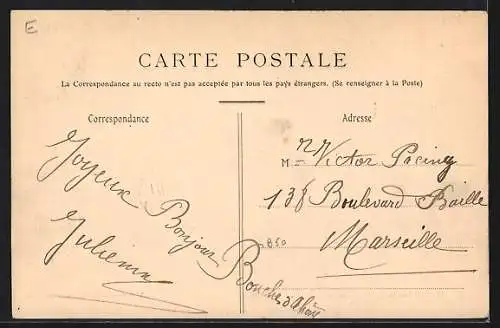 E
CARTE POSTALE
La Correspondance au recto n'est pas acceptée par tous les pays étrangers. (Se renseigner à la Poste)
Correspondance
Joyeux Bonjour
Adresse
M Victor
138 Boulevard Baille
Marseille
850
Bouches d Rhône